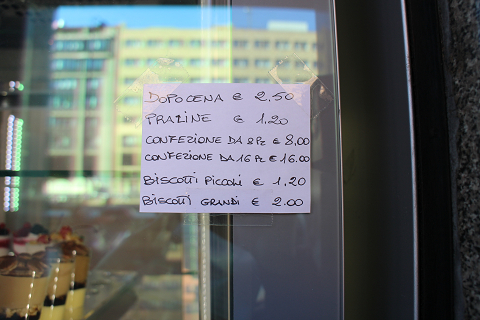 DOPOCENA € 2.50
PRALINE € 1,20
CONFEZIONE DA 8 Pz € 8,00
CONFEZIONE DA 16 Pz € 16.00
BISCOTTI PICCOLI € 1,20
BISCOTTI GRANDI € 2.00